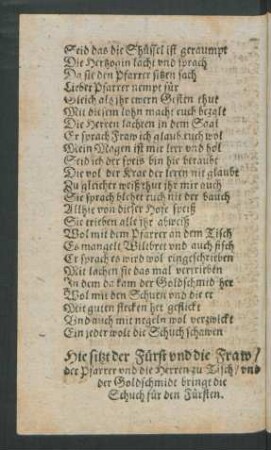 Seid das die Schüssel ist geraumpt
Die Hertzogin lacht vnd sprach
Da sie den Pfarrer sitzen sach
Lieber Pfarrer nempt für
Gleich als ihr ewern Gesten thut
Mit diesem lohn macht euch bezalt
Die Herren lachten in dem Saal
Er sprach Fraw ich glaub euch wol
Mein Magen ist mir leer vnd hol
Seid ich der speis bin hie beraubt
Die vol der Krae der leren nit glaubt
Zu gleicher weiß thut ihr mir auch
Sie sprach blehet euch nit der bauch
Allhie von dieser Hofe speiß
Sie trieben alle ihr abweiß
Wol mit dem Pfarrer an dem Tisch
Es mangelt Wiltbret vnd auch fisch
Er sprach es wird wol eingeschrieben
Mit lachen sie das mal vertrieben
In dem da kam der Goldschmid her
Wol mit den Schuen vnd die er
Mit guten flecken her geflickt
Vnd auch mit negeln wol verzwickt
Ein jeder wolt die Schuch schawen
Hie sitzt der Fürst vnd die Fraw /
der Pfarrer vnd die Herren zu Tisch / vnd
der Goldschmidt bringt die
Schuch für den Fürsten.